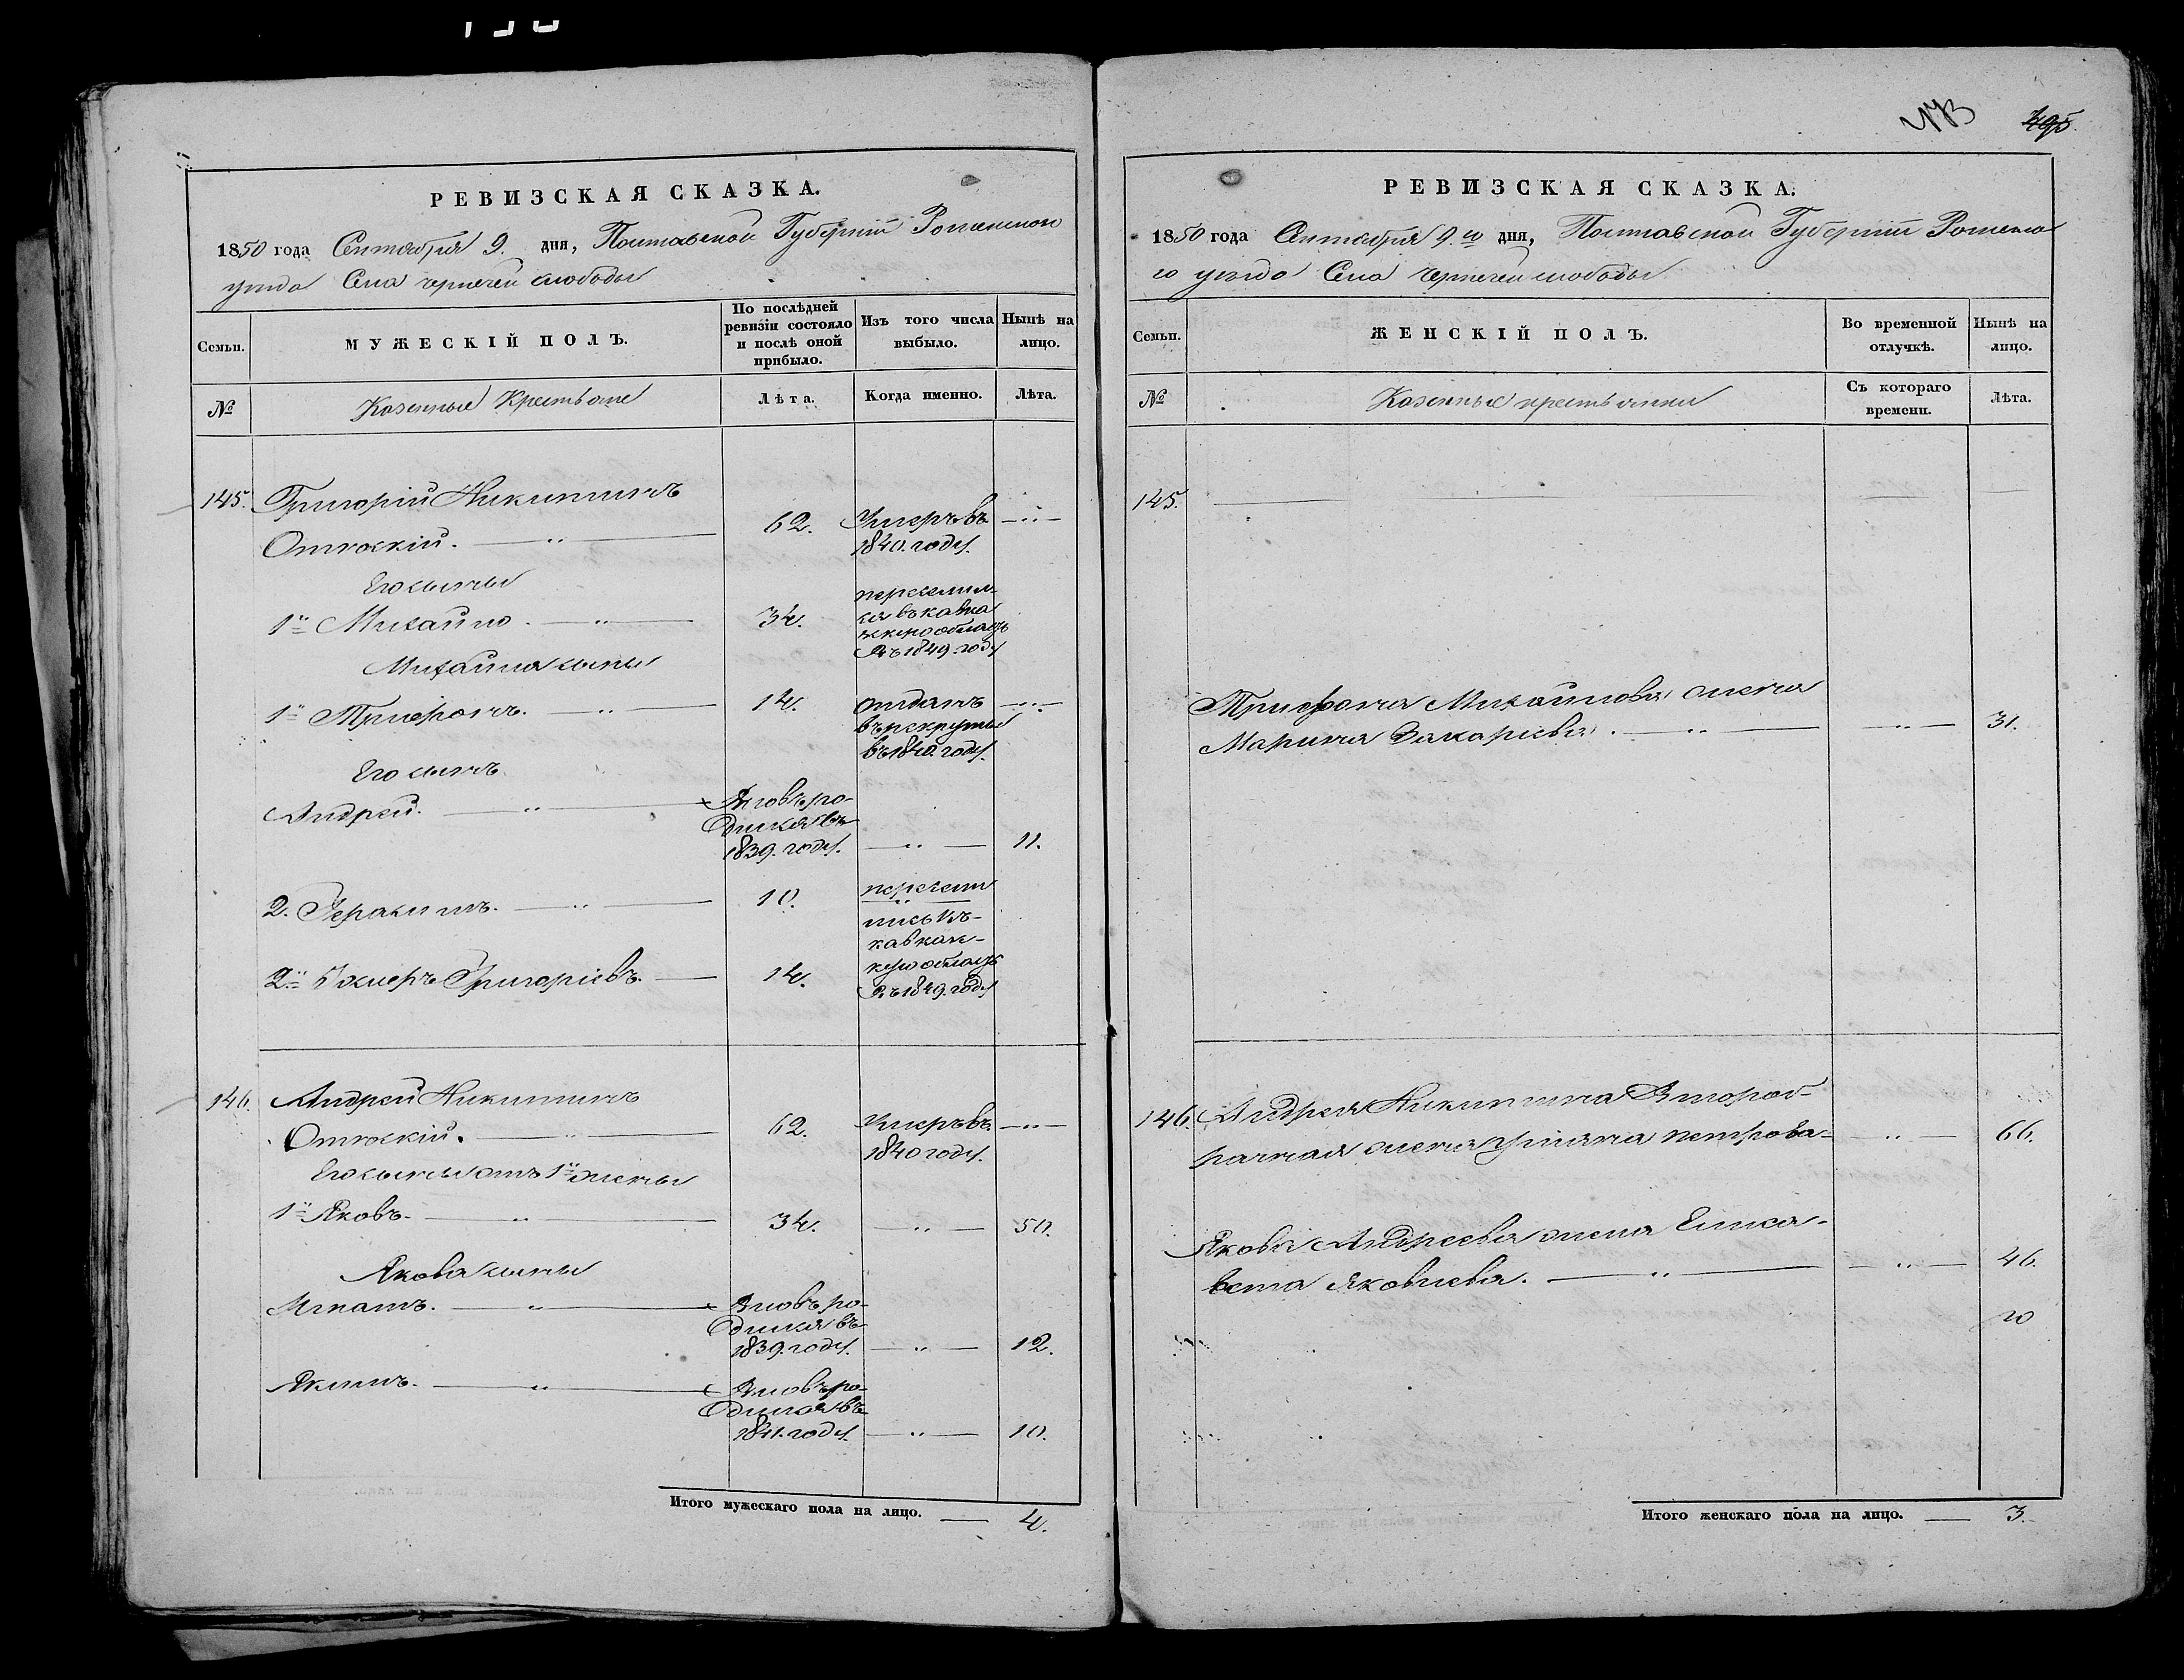 РЕВИЗСКАЯ СКАЗКА.
1850 года Сентября 9. дня, Полтавской Губерніи Роменского
уезда Села чернечей слободы
Семьи.
МУЖЕСКІЙ ПОЛЪ.
По послѣдней ревизіи состояло и послѣ оной прибыло.
Изъ того числа выбыло.
Нынѣ на лицо.
№
Казенные Крестьяне
Лѣта.
Когда именно.
Лѣта.
145. Григорій Никитинъ
62. Умеръ въ
1840. году.
Его сыны
1й Михайло. 34.
переселил-
ся въ кавка
зскую область
въ 1849. году
Михайла сыны
1й Трифонъ. 14. отданъ
въ рекруты
въ 1840 году.
Его сынъ
Андрей. Вновь ро-
дился въ
1839. году. 11.
2. Герасимъ. 10.
пересели
лись въ
кавказс-
кую область
въ 1849. году
Григоріевъ. 14.
146. Андрей Никитинъ
62. Умеръ въ
1840 году.
Его сыны отъ 1й жены
1й Яковъ. 34. 50.
Якова сыны
Игнатъ. Вновь ро-
дился въ
1839. году. 12.
Якимъ. Вновь ро-
дился въ
1841. году. 10.
Итого мужескаго пола на лицо. 4.
NB
395.
РЕВИЗСКАЯ СКАЗКА.
1850 года Сентября 9.го дня, Полтавской Губерніи Роменско
го уезда Села Чернечей слободы
Семьи.
ЖЕНСКІЙ ПОЛЪ.
Во временной отлучкѣ.
Нынѣ на лицо.
№
Казенные крестьянки
Съ котораго времени.
Лѣта.
145.
Трифона Михайлова жена
Марина Захаріева. 31.
146. Андрея Никитина Второб-
рачная жена Уліяна петрова 66.
Якова Андреева жена Елиса-
вета Яковлева. 46.
20
Итого женскаго пола на лицо. 3.